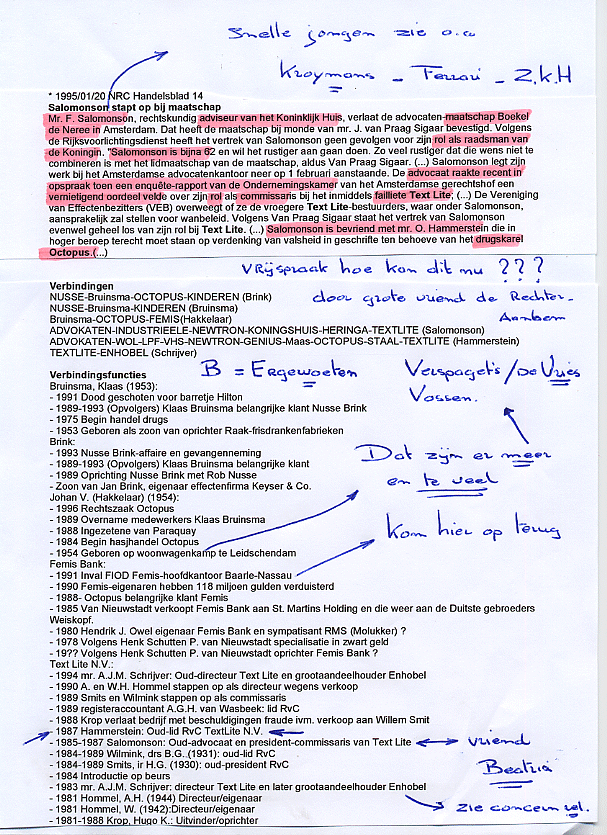 Snelle jongen zie o.a
Kroymans - Ferrari - Z.k.H
* 1995/01/20 NRC Handelsblad 14
Salomonson stapt op bij maatschap
Mr. F. Salomonson, rechtskundig adviseur van het Koninklijk Huis, verlaat de advocaten-maatschap Boekel
de Neree in Amsterdam. Dat heeft de maatschap bij monde van mr. J. van Praag Sigaar bevestigd. Volgens
de Rijksvoorlichtingsdienst heeft het vertrek van Salomonson geen gevolgen voor zijn rol als raadsman van
de Koningin. "Salomonson is bijna 62 en wil het rustiger aan gaan doen. Zo veel rustiger dat die wens niet te
combineren is met het lidmaatschap van de maatschap, aldus Van Praag Sigaar. (...) Salomonson legt zijn
werk bij het Amsterdamse advocatenkantoor neer op 1 februari aanstaande. De advocaat raakte recent in
opspraak toen een enquête-rapport van de Ondernemingskamer van het Amsterdamse gerechtshof een
vernietigend oordeel velde over zijn rol als commissaris bij het inmiddels failliete Text Lite; (...) De Vereniging
van Effectenbezitters (VEB) overweegt of ze de vroegere Text Lite-bestuurders, waar onder Salomonson,
aansprakelijk zal stellen voor wanbeleid. Volgens Van Praag Sigaar staat het vertrek van Salomonson
evenwel geheel los van zijn rol bij Text Lite. (...) Salomonson is bevriend met mr. O. Hammerstein die in
hoger beroep terecht moet staan op verdenking van valsheid in geschrifte ten behoeve van het drugskarel
Octopus.(...)
VRijspraak hoe kon dit nu ???
Verbindingen
NUSSE-Bruinsma-OCTOPUS-KINDEREN (Brink)
door grote vriend de Rechter-
NUSSE-Bruinsma-KINDEREN (Bruinsma)
Bruinsma-OCTOPUS-FEMIS(Hakkelaar)
Arnhem
ADVOKATEN-INDUSTRIEELE-NEWTRON-KONINGSHUIS-HERINGA-TEXTLITE (Salomonson)
ADVOKATEN-WOL-LPF-VHS-NEWTRON-GENIUS-Maas-OCTOPUS-STAAL-TEXTLITE (Hammerstein)
TEXTLITE-ENHOBEL (Schrijver)
B = Ergewoeten
Verspaget's / De Vries
Vossen.
Verbindingsfuncties
Bruinsma, Klaas (1953):
- 1991 Dood geschoten voor barretje Hilton
- 1989-1993 (Opvolgers) Klaas Bruinsma belangrijke klant Nusse Brink
- 1975 Begin handel drugs
- 1953 Geboren als zoon van oprichter Raak-frisdrankenfabrieken
Brink:
Dat zijn er meer
- 1993 Nusse Brink-affaire en gevangenneming
- 1989-1993 (Opvolgers) Klaas Bruinsma belangrijke klant
en te veel
- 1989 Oprichting Nusse Brink met Rob Nusse
- Zoon van Jan Brink, eigenaar effectenfirma Keyser & Co.
Johan V. (Hakkelaar) (1954):
- 1996 Rechtszaak Octopus
- 1989 Overname medewerkers Klaas Bruinsma
- 1988 Ingezetene van Paraquay
- 1984 Begin hasjhandel Octopus
Kom hier op terug
- 1954 Geboren op woonwagenkamp te Leidschendam
Femis Bank:
- 1991 Inval FIOD Femis-hoofdkantoor Baarle-Nassau
- 1990 Femis-eigenaren hebben 118 miljoen gulden verduisterd
- 1988- Octopus belangrijke klant Femis
- 1985 Van Nieuwstadt verkoopt Femis Bank aan St. Martins Holding en die weer aan de Duitste gebroeders
Weiskopf.
- 1980 Hendrik J. Owel eigenaar Femis Bank en sympatisant RMS (Molukker) ?
- 1978 Volgens Henk Schutten P. van Nieuwstadt specialisatie in zwart geld
- 19?? Volgens Henk Schutten P. van Nieuwstadt oprichter Femis Bank ?
Text Lite N.V.:
- 1994 mr. A.J.M. Schrijver: Oud-directeur Text Lite en grootaandeelhouder Enhobel
- 1990 A. en W.H. Hommel stappen op als directie wegens verkoop
- 1989 Smits en Wilmink stappen op als commissaris
- 1989 registeraccountant A.G.H. van Wasbeek: lid RvC
- 1988 Krop verlaat bedrijf met beschuldigingen fraude ivm. verkoop aan Willem Smit
- 1987 Hammerstein: Oud-lid RvC TextLite N.V.
- 1985-1987 Salomonson: Oud-advocaat en president-commissaris van Text Lite
vriend
- 1984-1989 Wilmink, drs B.G. (1931): oud-lid RvC
- 1984-1989 Smits, ir H.G. (1930): oud-president RvC
Beatrix
- 1984 Introductie op beurs
- 1983 mr. A.J.M. Schrijver: directeur Text Lite en later grootaandeelhouder Enhobel
- 1981 Hommel, A.H. (1944) Directeur/eigenaar
- 1981 Hommel, W. (1942):Directeur/eigenaar
zie concern
- 1981-1988 Krop, Hugo K.: Uitvinder/oprichter